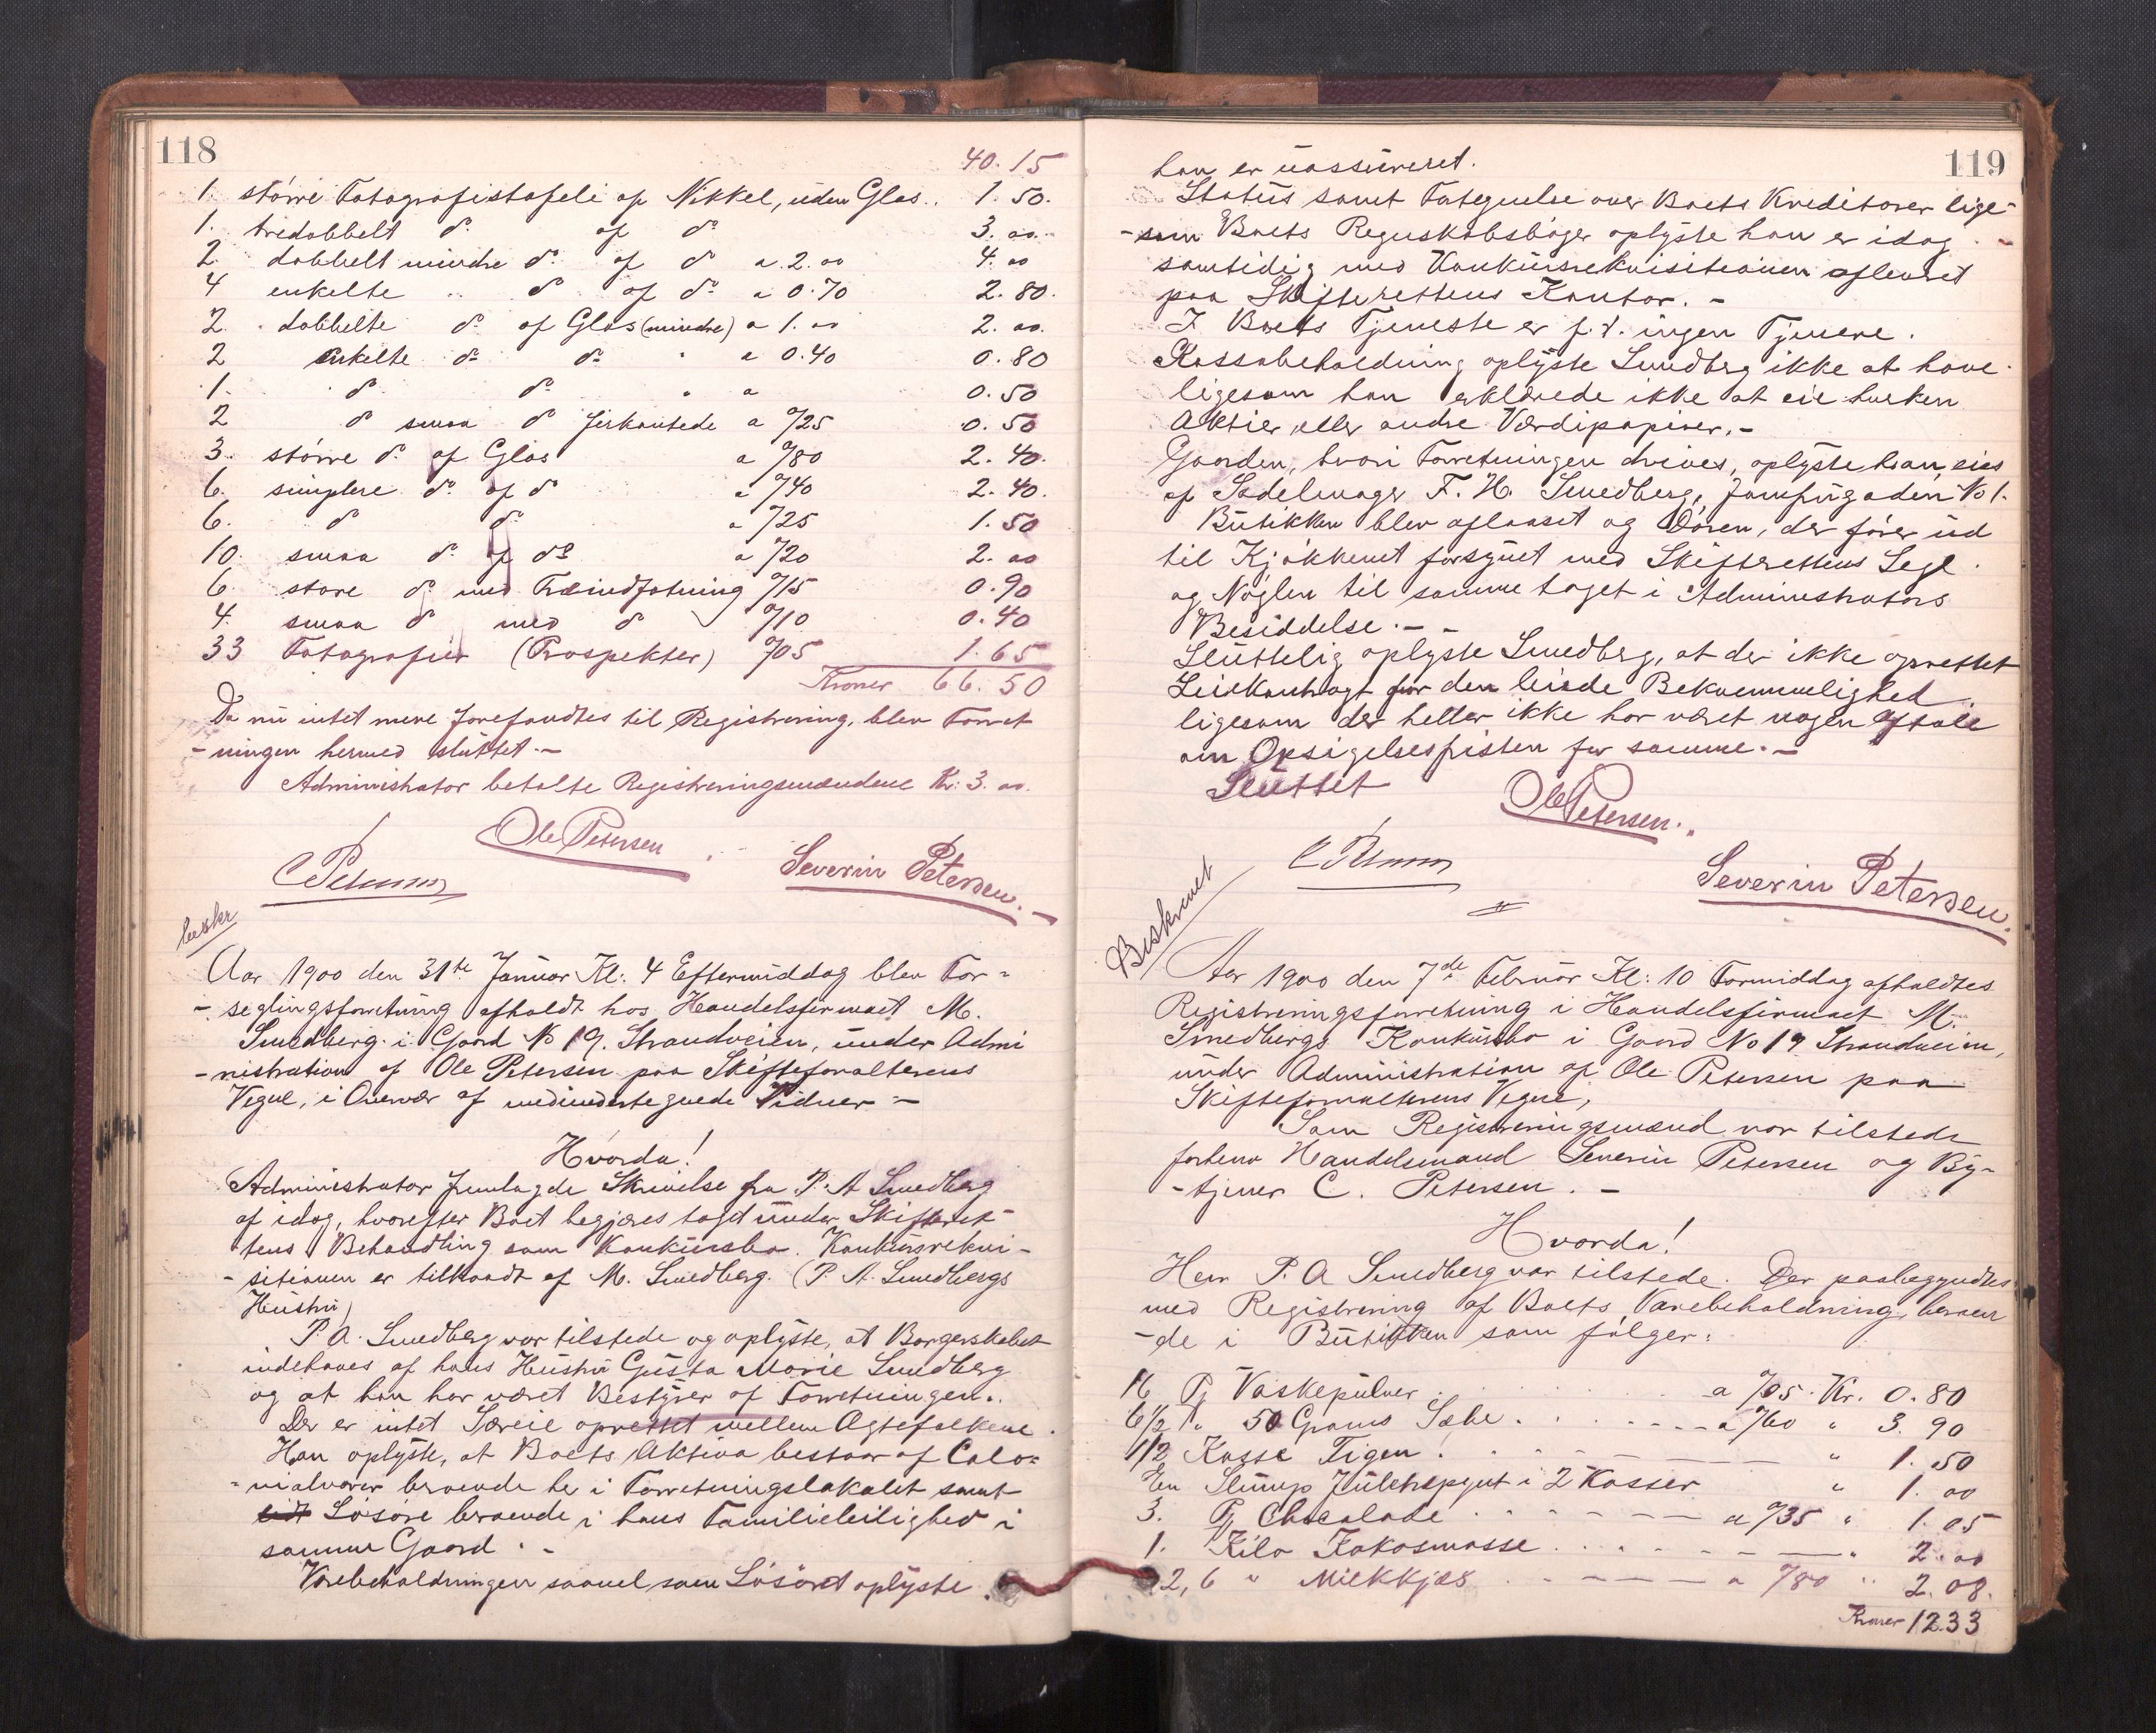 118
40. 15
1. större Fotografistafeli af Nikkel, uden Glas.. 1. 50.
1. tredobbelt do af do 3. 00.
2. dobbelt mindre do af do a 2. 00 4. 00
4 enkelte " do af do a 0.70 2. 80.
2. dobbelte do af Glas (mindre) a 1. 00 2. 00.
2 enkelte do do " a 0.40 0. 80
1. do do " a 0. 50
2 do smaa do firkantede a 0/25 0. 50
3. större do af Glas a 0/80 2. 40.
6. simplere do af do a 0/40 2. 40.
6. do do a 0/25 1. 50
10. smaa do af do a 0/20 2. 00
6 store do med Træindfatning 0/15 0. 90
4. smaa do med do 0/10 0. 40
33 Fotografier (Prospekter) 0/05 1. 65
Kroner 66. 50
Da nu intet mere forefandtes til Registrering, blev Forret
-ningen hermed sluttet.-
Administrator betalte Registreringsmændene Kr. 3. 00.
Ole Petersen
C Petersen
Severin Petersen.
beskr
Aar 1900 den 31te Januar Kl: 4 Eftermiddag blev For-
-seglingsforretning afholdt hos Handelsfirmaet M.
Smedberg i Gaard No 19. Strandveien, under Admi
-nistration af Ole Petersen paa Skifteforvalterens
Vegne, i Overvær af medundertegnede Vidner -
Hvorda!
Administrator fremlagde Skrivelse fra P. A Smedberg
af idag, hvorefter Boet begjæres taget under Skifteret-
tens Behandling som Konkursbo. Konkursrekvi-
-sitionen er tiltraadt af M. Smedberg. (P. A. Smedbergs
Hustru)
P. A. Smedberg var tilstede og oplyste, at Borgerskabet
indehaves af hans Hustru Gusta Marie Smedberg
og at han har været Bestyrer af Forretningen..
Der er intet Særeie oprettet mellem Ægtefolkene.
Han oplyste, at Boets Aktiva bestaar af Colo-
-nialvarer beroende her i Forretningslokalet samt
Lösöre beroende i hans Familieleilighed i
samme Gaard. -
Varebeholdningen saavel som Lösöret oplyste
119
han er uassureret.
Status samt Fortegnelse over Boets Kreditorer lige-
-som Boets Regnskabsböger oplyste han er idag
samtidig med Konkursrekvisitionen afleveret
paa Skifterettens Kontor. -
I Boets Tjeneste er f. t. ingen Tjenere.
Kassabeholdning oplyste Smedberg ikke at have
ligesom han erklærede ikke at eie hverken
Aktier eller andre Værdipapirer.-
Gaarden, hvori Forretningen drives, oplyste han eies
af Sadelmager F. H. Smedberg, Jomfrugaden No 1.
Butikken blev aflaaset og Dören, der förer ud
til Kjökkenet forsynet med Skifterettens Segl
og Nöglen til samme taget i Administrators
Besiddelse. - -
Sluttelig oplyste Smedberg, at der ikke oprettet
Leiekontragt for den leiede Bekvemmelighed
ligesom der heller ikke har været nogen Aftale
om Opsigelsesfristen for samme. -
Sluttet
Ole Petersen.
C Petersen
Severin Petersen.
Beskrevet
Aar 1900 den 7de Februar Kl: 10 Formiddag afholdtes
Registreringsforretning i Handelsfirmaet M.
Smedbergs Konkursbo i Gaard No 19 Strandveien,
under Administration af Ole Petersen paa
Skifteforvalterens Vegne,
Som Registreringsmænd var tilstede
forhenv Handelsmand Severin Petersen og By-
-tjener C. Petersen. -
Hvorda!
Herr P. A Smedberg var tilstede. Der paabegyndtes
med Registrering af Boets Varebeholdning, beroen
-de i Butikken som fölger:
16 Pj Vaskepulver a 0/05. Kr. 0. 80
6 1/2 " 50 Grams Sæbe a 0/60 " 3. 90
1/2 Kasse Figen " 1. 50
En Slump Juletrepynt i 2 Kasser " 1. 00
3. Pj Chocolade a 0/35 " 1. 05
1. Kilo Kokosmasse " 2. 00
2,6 " Melkkjæs a 0/80 " 2. 08.
Kroner 12.33